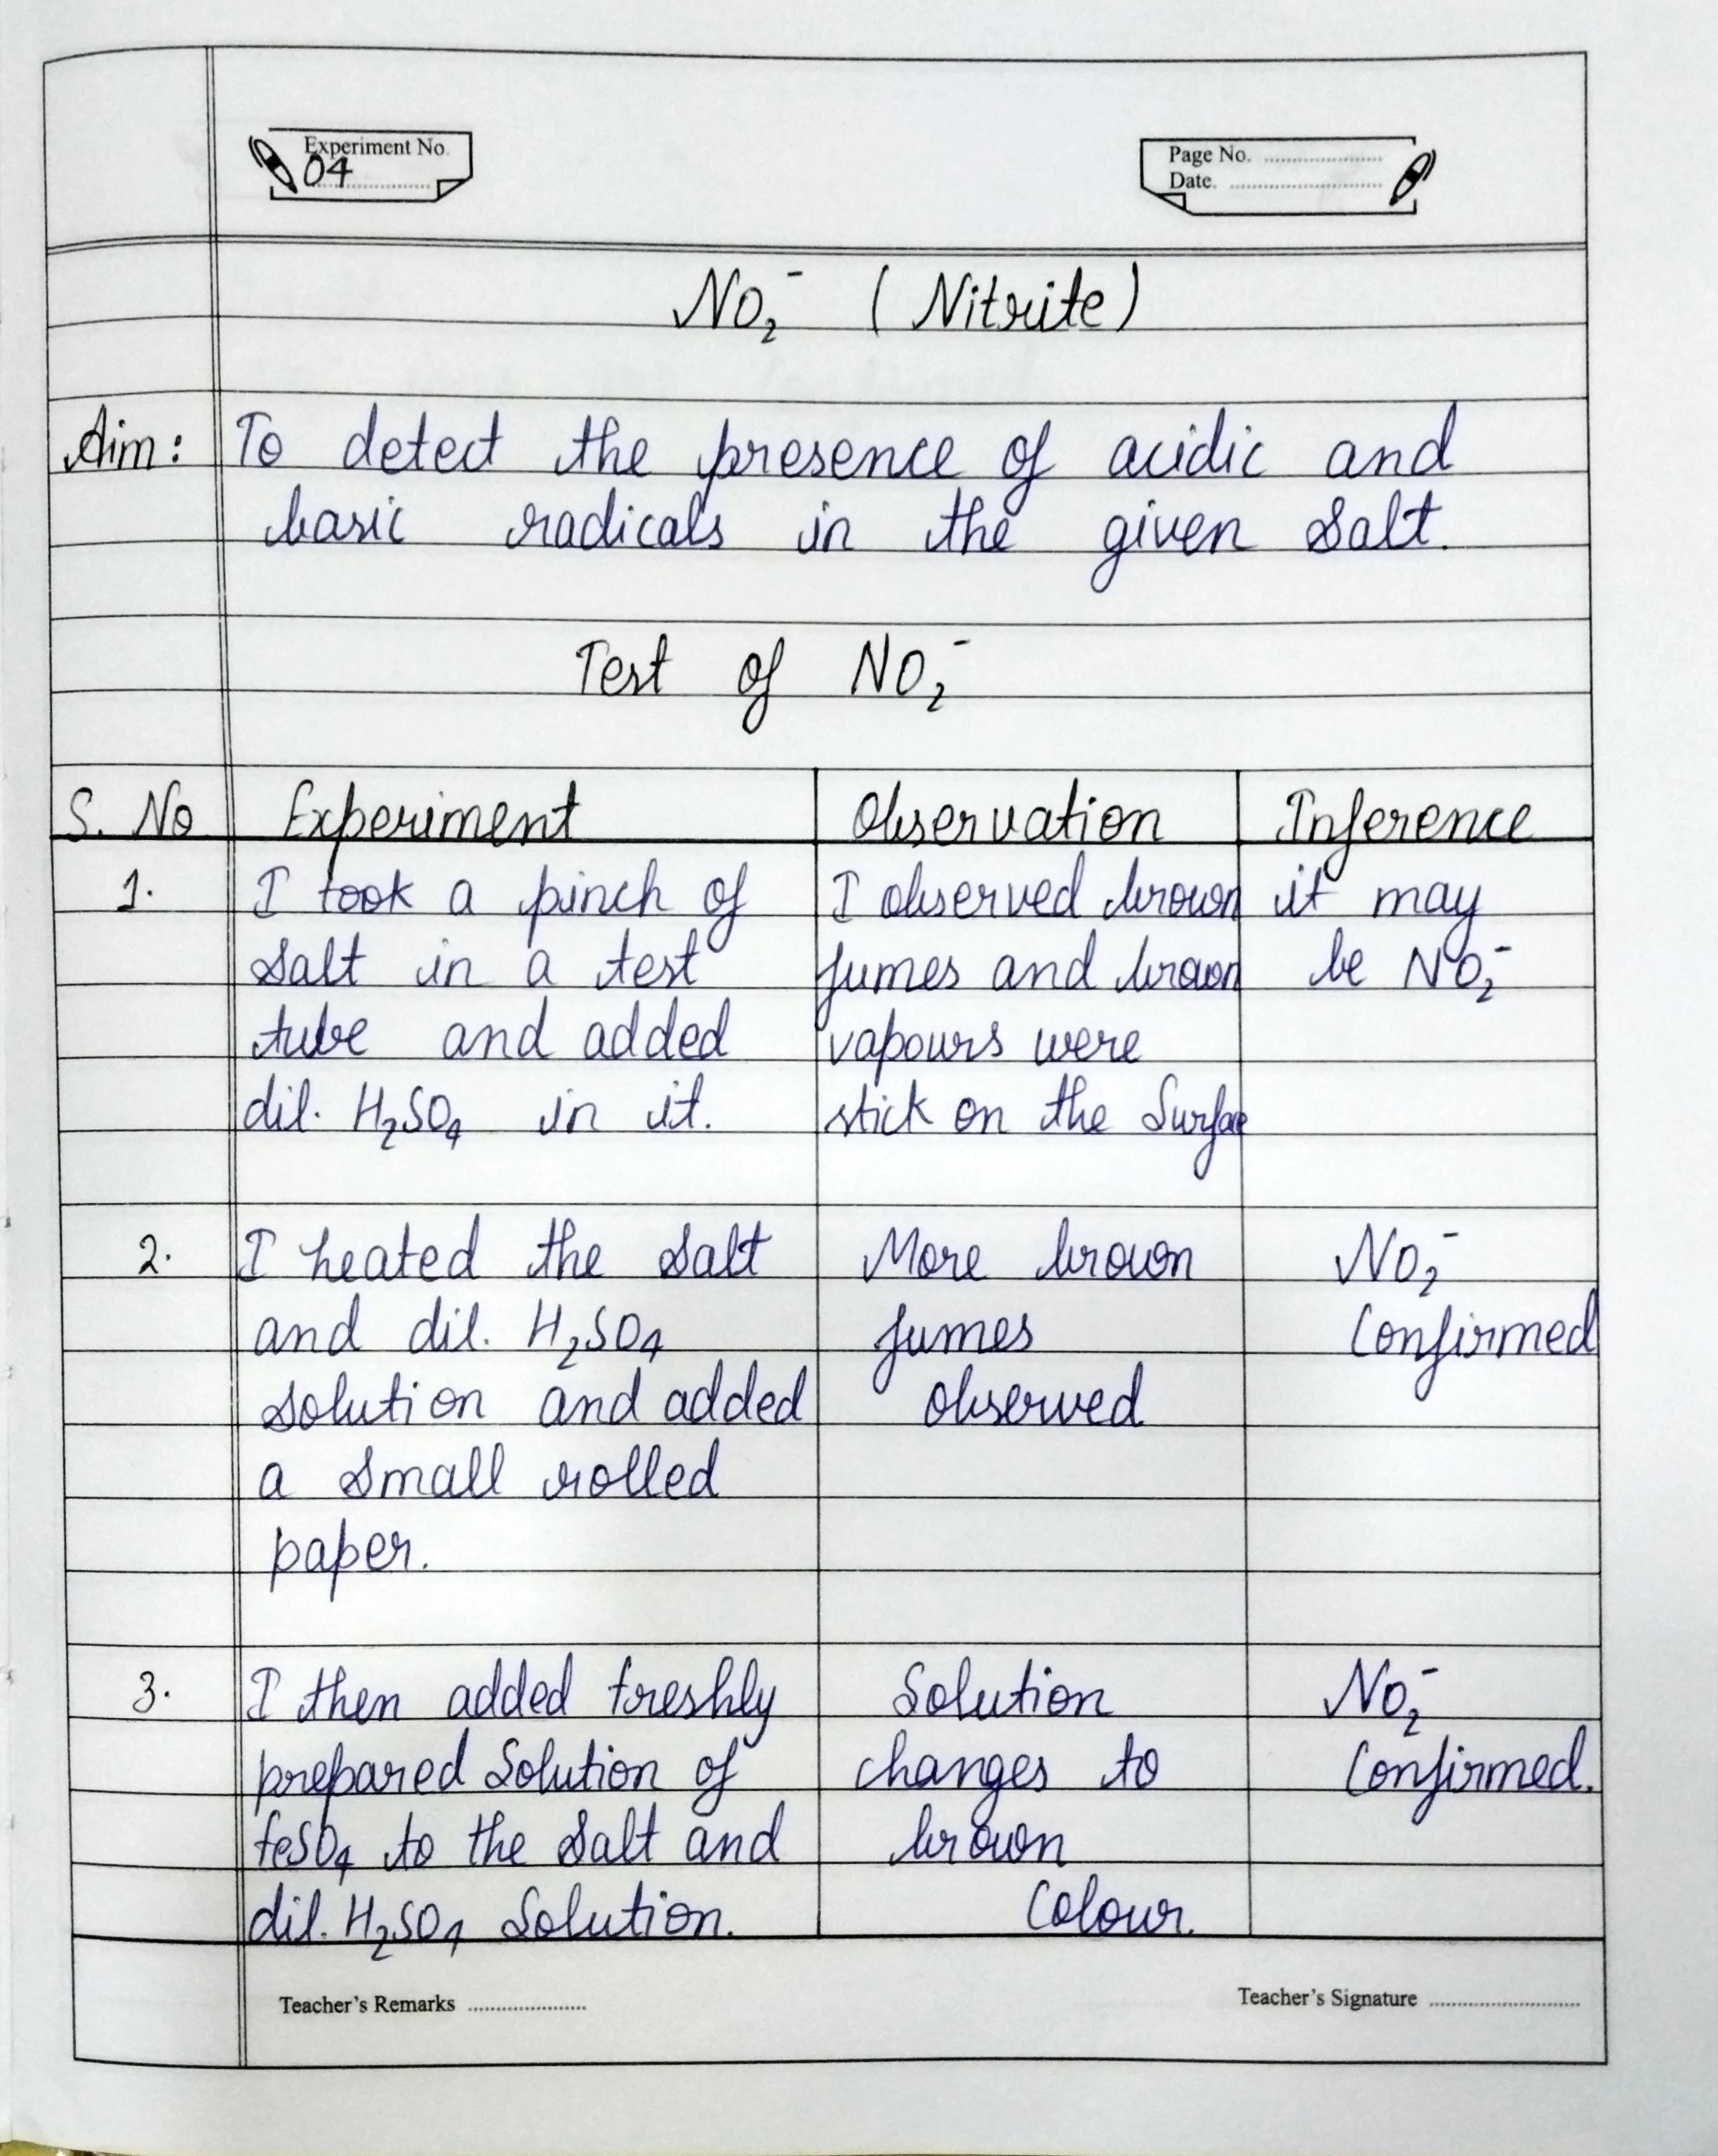 Experiment No.
04
Page No.
Date.
NO₂⁻ (Nitrite)
Aim: To detect the presence of acidic and
basic radicals in the given Salt.
Test of NO₂⁻
S. No Experiment Observation Inference
1. I took a pinch of I observed brown it may
Salt in a test fumes and brown be NO₂⁻
tube and added vapours were
dil. H₂SO₄ in it. stick on the Surface
2. I heated the Salt More brown NO₂⁻
and dil. H₂SO₄ fumes Confirmed
solution and added observed
a small rolled
paper.
3. I then added freshly Solution NO₂⁻
prepared Solution of changes to Confirmed.
FeSO₄ to the Salt and brown
dil. H₂SO₄ Solution. Colour.
Teacher's Remarks
Teacher's Signature